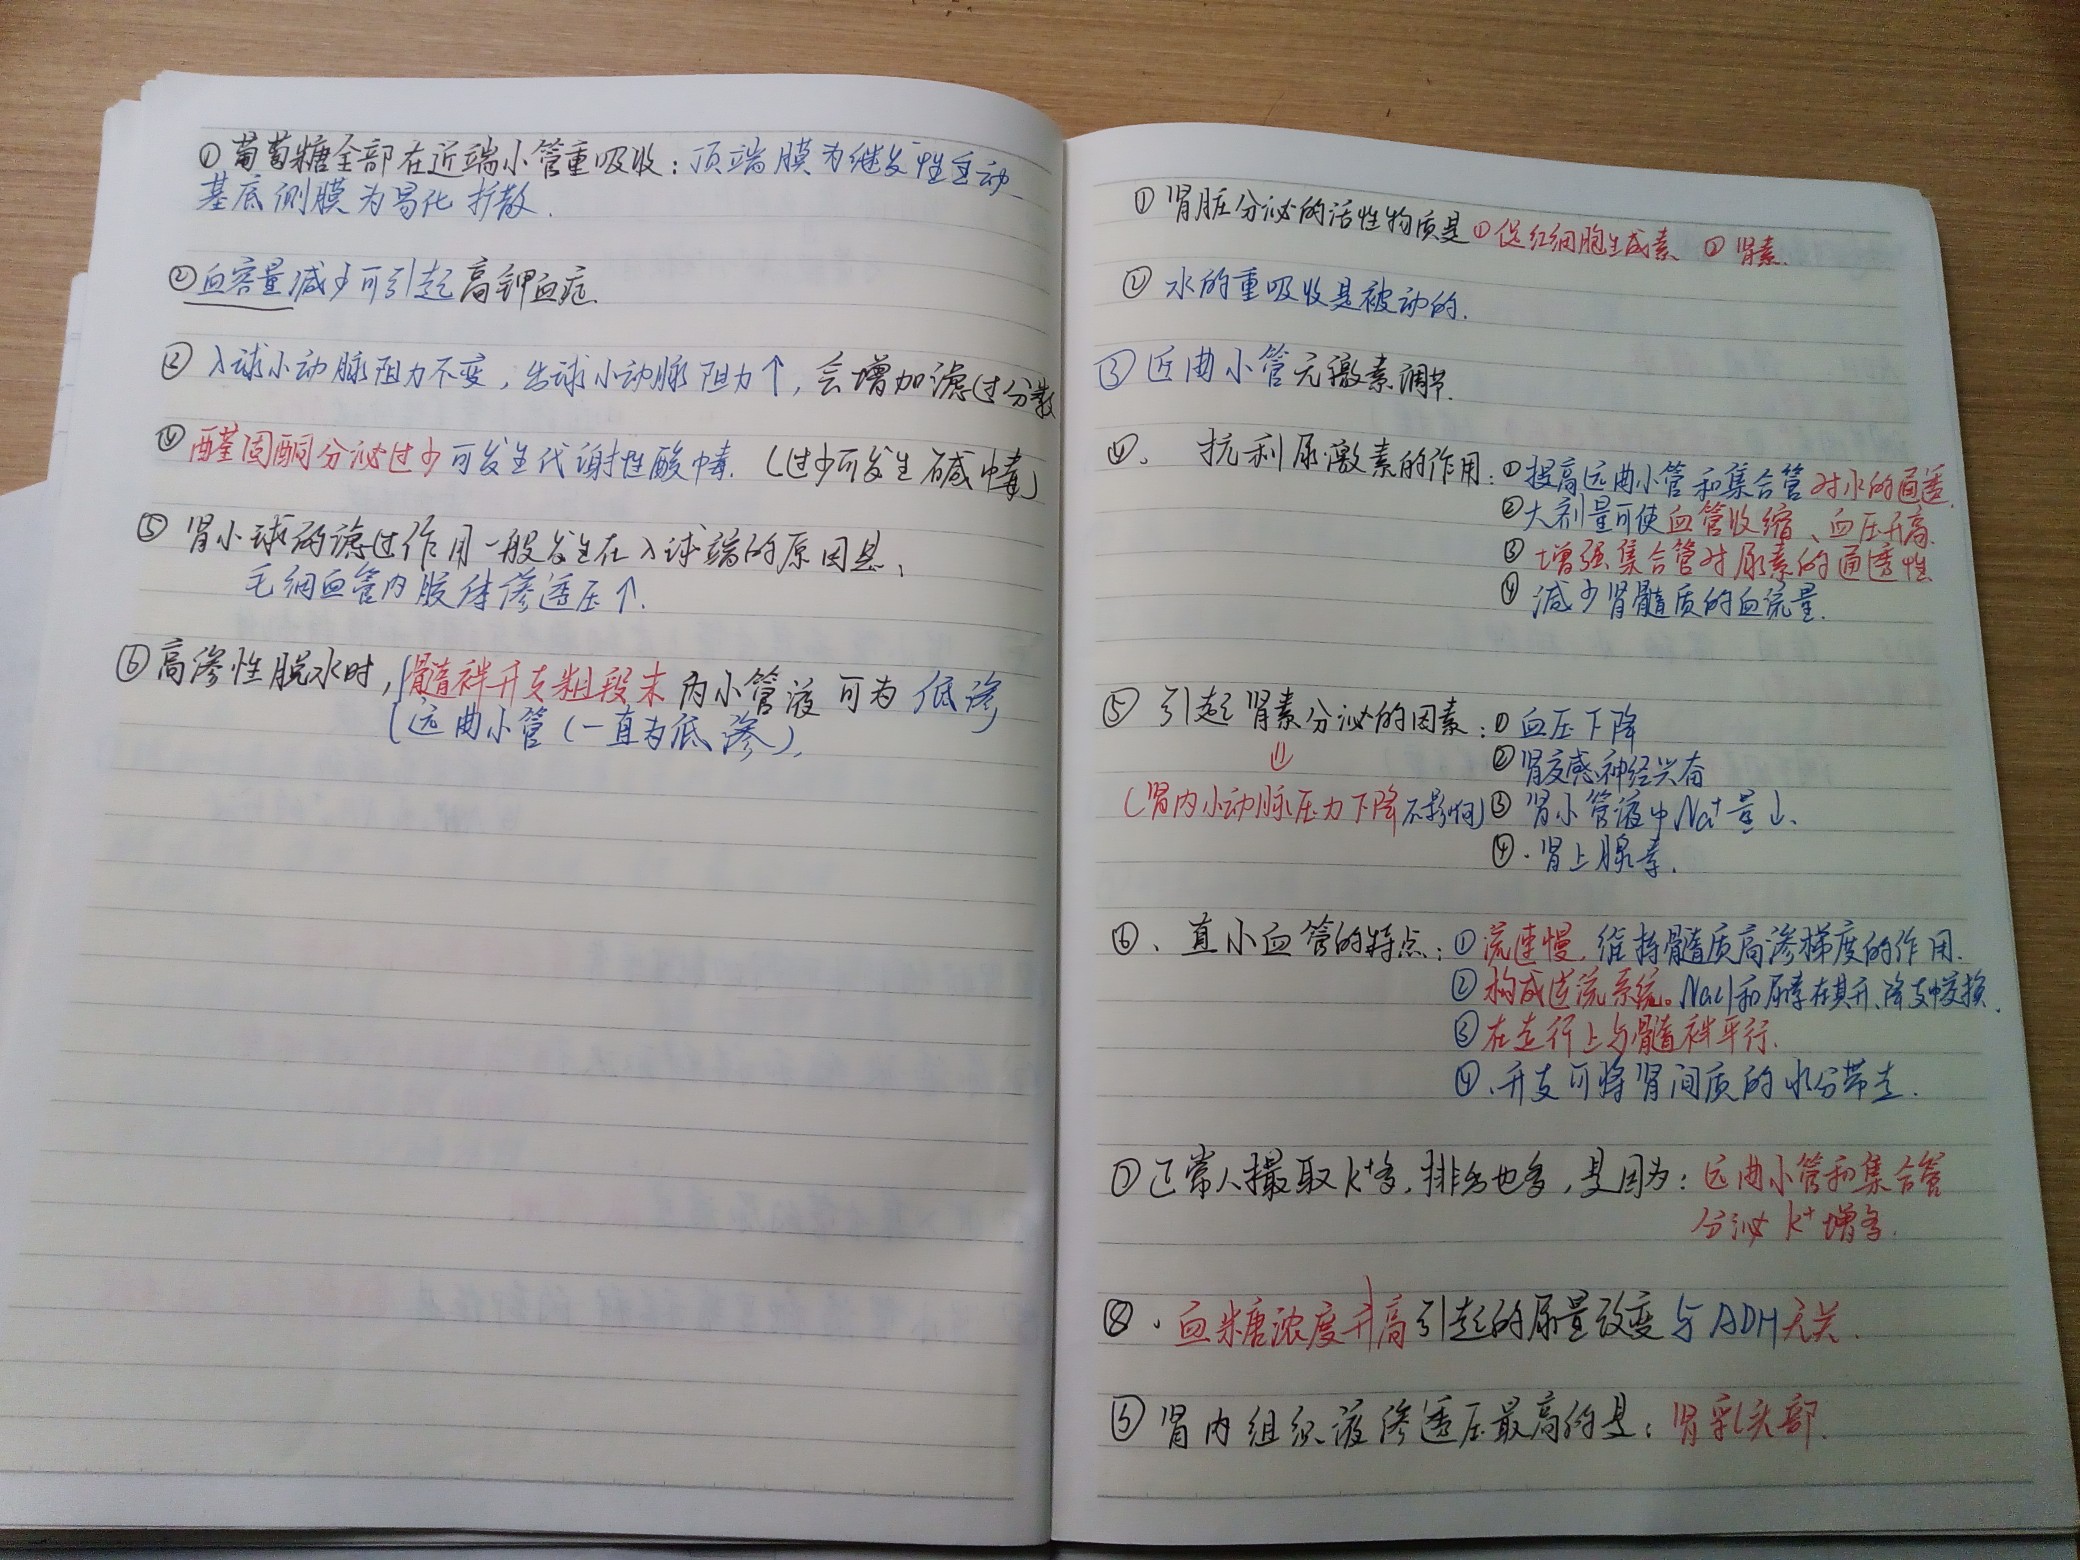 ①葡萄糖全部在近端小管重吸收：顶端膜为继发性主动
基底侧膜为易化扩散.
②血容量减少可引起高钾血症.
② 入球小动脉阻力不变，出球小动脉阻力↑，会增加滤过分数
④醛固酮分泌过少可发生代谢性酸中毒.（过少可发生碱中毒）
⑤ 肾小球的滤过作用一般发生在入球端的原因是、
毛细血管内胶体渗透压↑.
⑥高渗性脱水时，髓袢升支粗段末 内小管液 可为 低渗
远曲小管（一直为低渗）.
① 肾脏分泌的活性物质是 ①促红细胞生成素 ② 肾素.
② 水的重吸收是被动的.
③ 近曲小管无激素调节.
④、 抗利尿激素的作用：①提高远曲小管和集合管对水的通透.
②大剂量可使血管收缩、血压升高.
③ 增强集合管对尿素的通透性
④ 减少肾髓质的血流量.
⑤ 引起肾素分泌的因素：① 血压下降
⇓ ②肾交感神经兴奋
（肾内小动脉压力下降不影响）③ 肾小管液中Na⁺量↓、
④.肾上腺素.
⑥、直小血管的特点：①流速慢，维持髓质高渗梯度的作用.
②构成逆流系统。NaCl和尿素在其升、降支中交换.
③在走行上与髓袢平行.
④、升支可将肾间质的水分带走.
⑦正常人摄取K⁺多，排出也多，是因为：远曲小管和集合管
分泌K⁺增多.
⑧、血糖浓度升高引起的尿量改变与ADH无关.
⑨ 肾内组织液渗透压最高的是：肾乳头部.